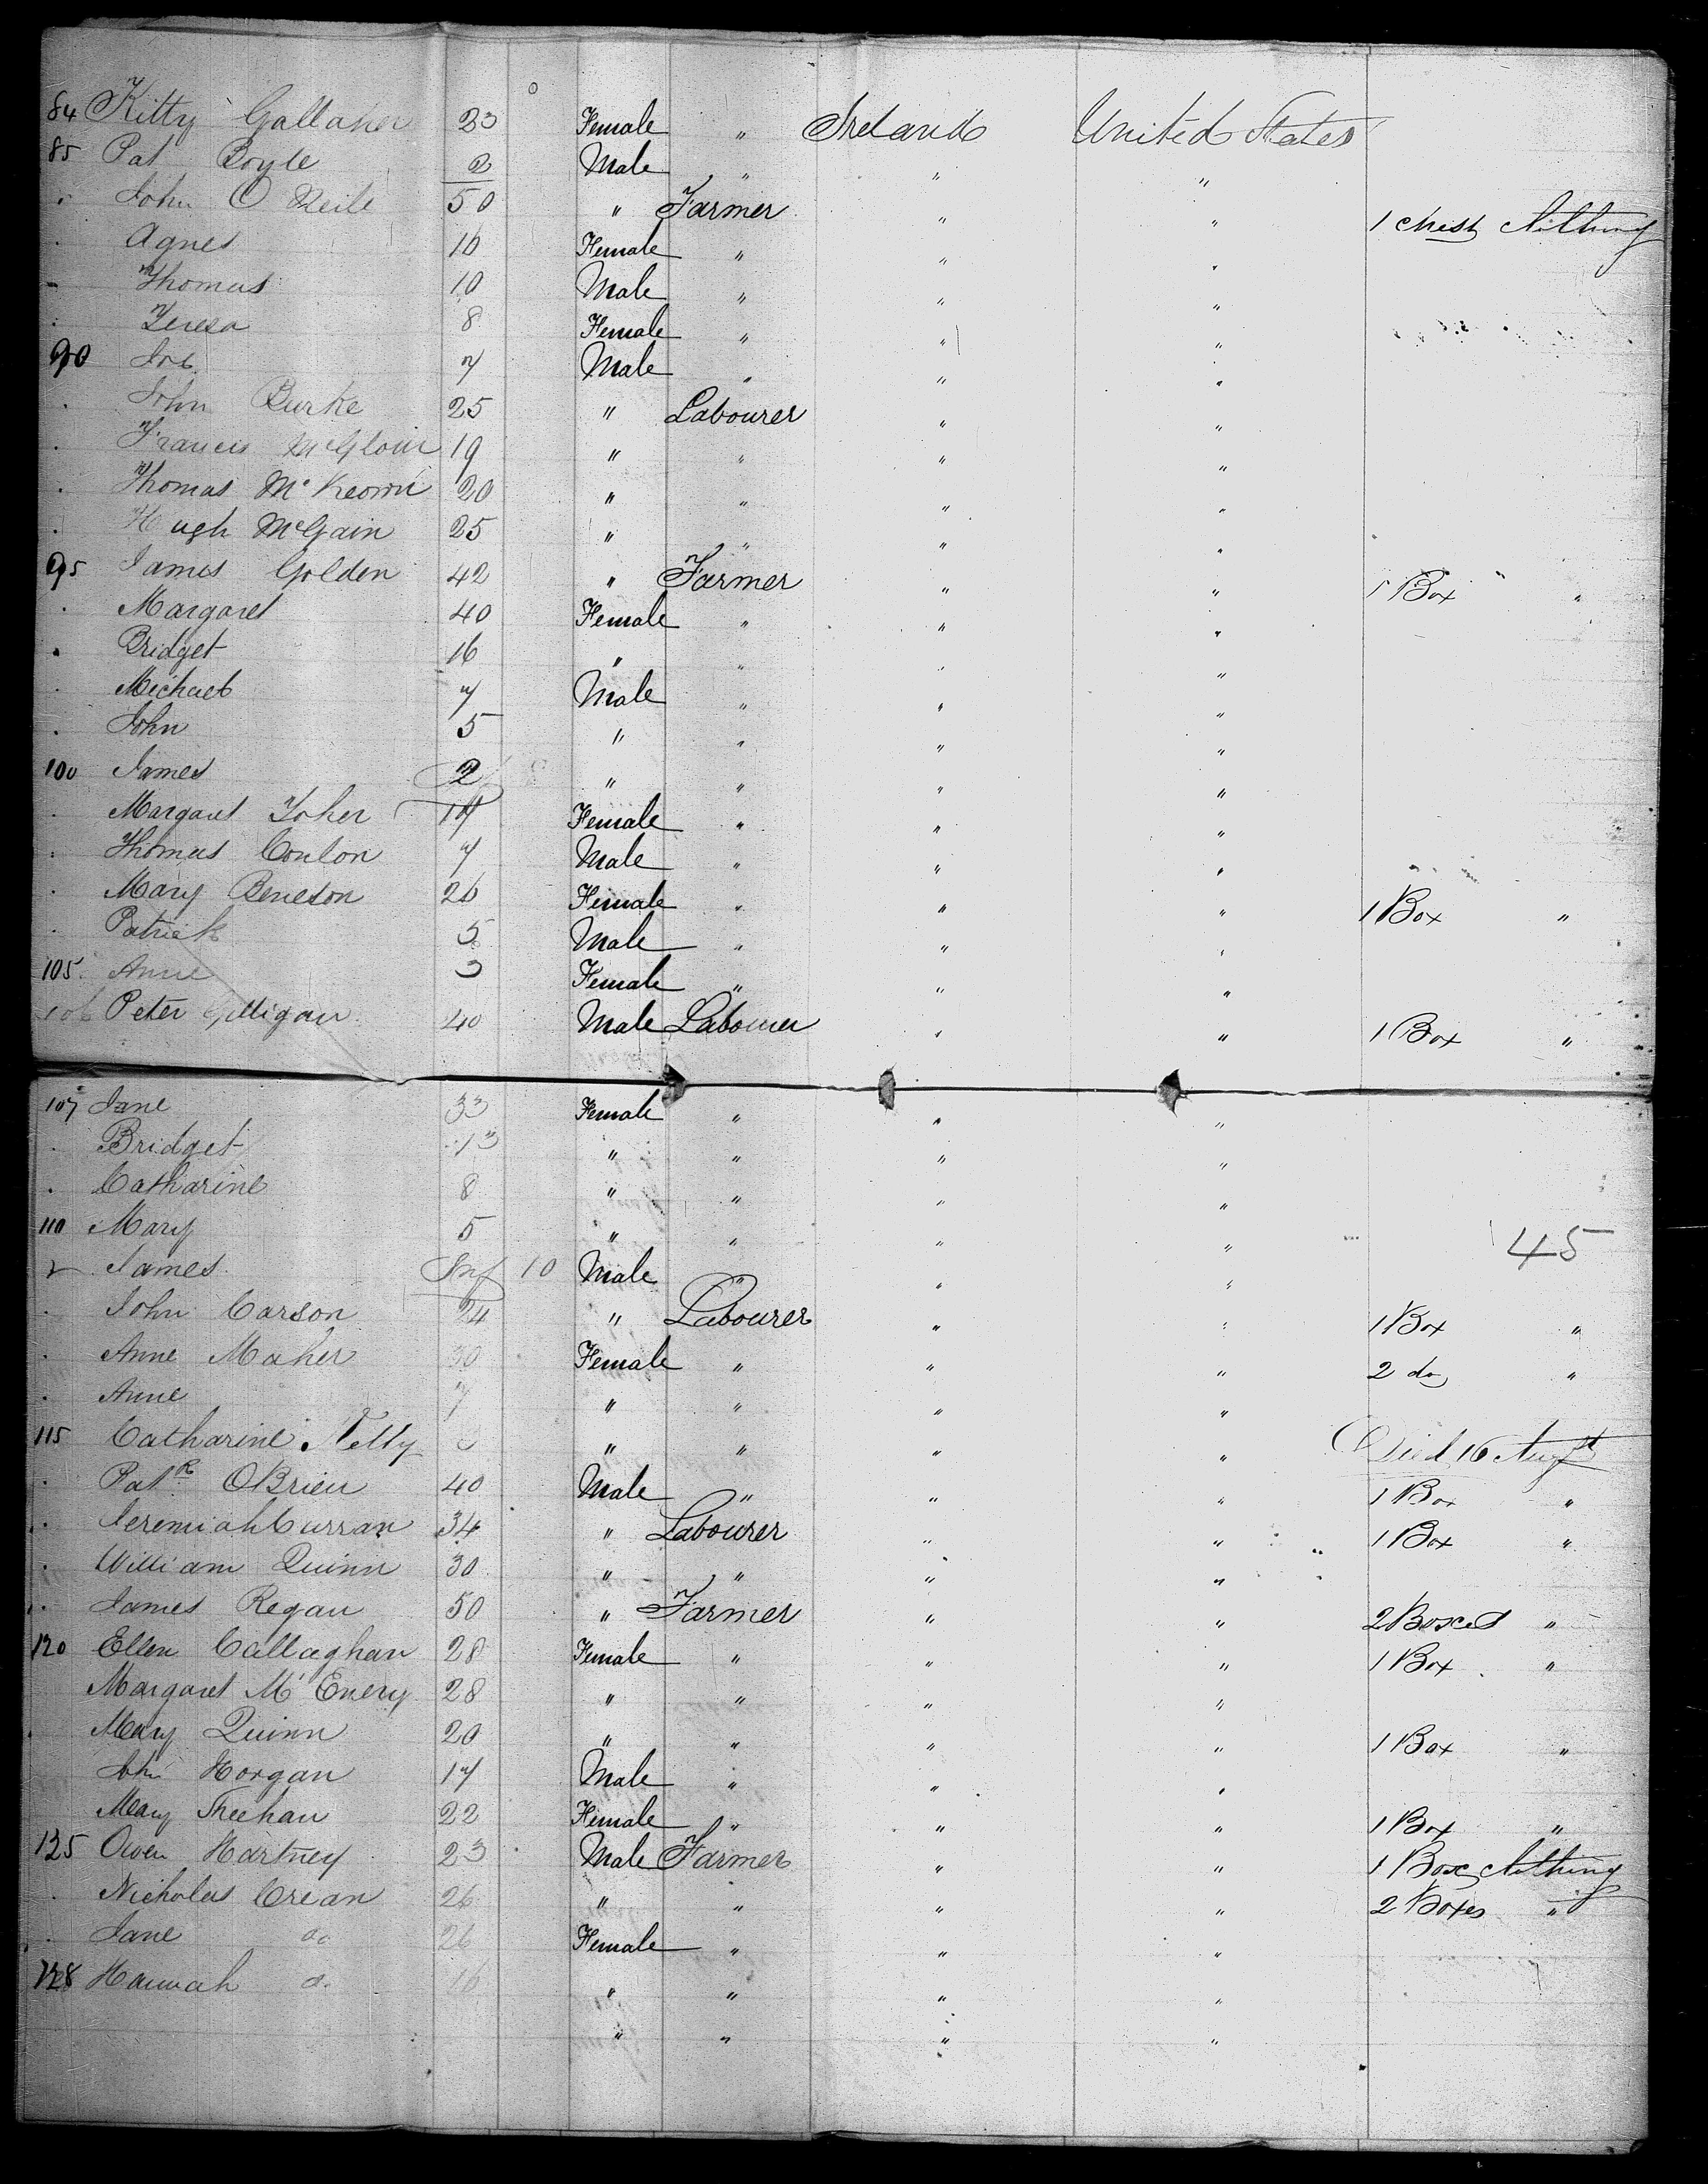 84 Kitty Gallaher 23 Female " Ireland United States
85 Pat Boyle 2 Male " " "
" John O Neile 50 " Farmer " " 1 Chest Clothing
Agnes 16 Female " " "
Thomas 10 Male " " "
Teresa 8 Female " " "
90 7 Male " " "
John Burke 25 " Labourer " "
Francis McGloin 19 " " " "
Thomas McKeown 20 " " " "
Hugh McGain 25 " " " "
95 James Golden 42 " Farmer " " 1 Box " "
Margaret 40 Female " " "
Bridget 16 " " " "
Michael 7 Male " " "
John 5 " " " "
100 James 2 " " " "
Margaret Toher Female " " "
Thomas Conlon 7 Male " " "
Mary Beneson 26 Female " " " 1 Box "
Patrick 5 Male " " "
105 Anne 3 Female " " "
106 Peter Gilligan 40 Male Labourer " " 1 Box "
107 Jane 33 Female " " "
Bridget 13 " " " "
Catharine 8 " " " "
110 Mary 5 " " " "
45
James Inf 10 Male " " "
John Carson 24 " Labourer " " 1 Box "
Anne Maher 30 Female " " " 2 do "
Anne 7 " " " "
115 Catharine " " " " Died 16 Augst
Patk OBrien 40 Male " " " 1 Box "
Jeremiah Curran 34 " Labourer " " 1 Box "
William Quinn 30 " " " "
James Regan 50 " Farmer " " 2 Boxes "
120 Ellen Callaghan 28 Female " " " 1 Box "
Margaret McEnery 28 " " " "
Mary Quinn 20 " " " " 1 Box "
John Horgan 17 Male " " "
Mary Sheehan 22 Female " " " 1 Box "
125 Owen Hartney 23 Male Farmer " " 1 Box Clothing
Nicholas Crean 26 " " " " 2 Boxes "
Jane do 26 Female " " "
128 Hannah do 16 " " " "
" " " "